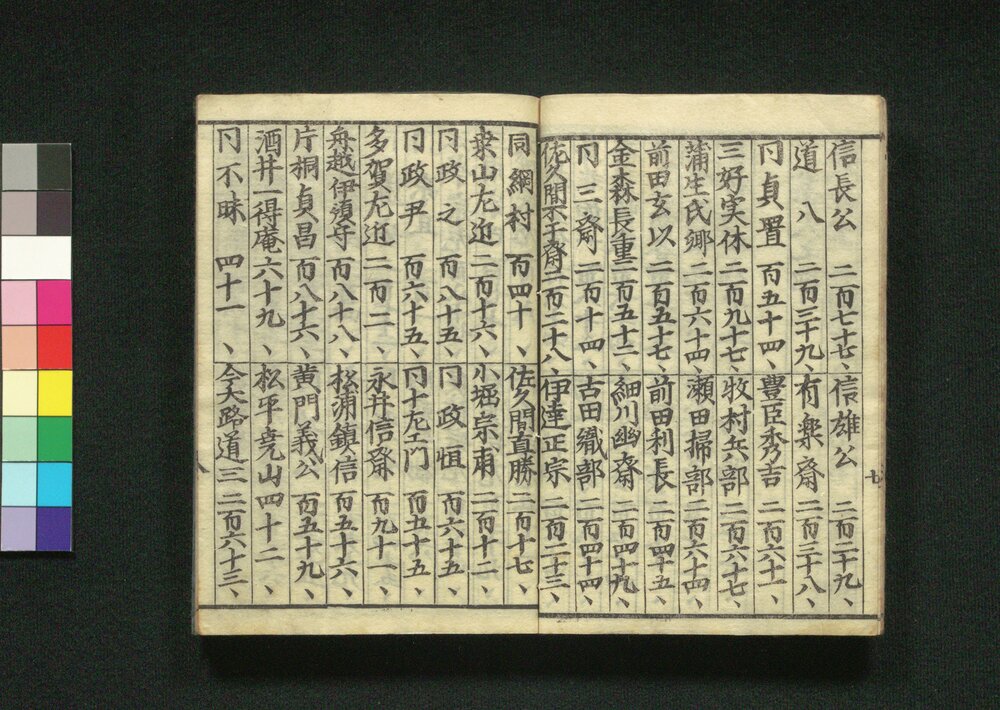 信長公 二百七十七、
道八 二百三十九、
冂貞置 百五十四、
三好実休 二百九十七、
蒲生氏郷 二百六十四、
前田玄以 二百五十七、
金森長重 二百五十二、
冂三斎 二百十四、
佐久間不干斎 二百二十八、
信雄公 二百二十九、
有楽斎 二百三十八、
豊臣秀吉 二百六十一、
牧村兵部 二百六十七、
瀬田掃部 二百六十四、
前田利長 二百四十五、
細川幽斎 二百四十九、
古田織部 二百四十四、
伊達正宗 二百二十三、
七
同網村 百四十、
桒山左近 二百十六、
冂政之 百八十五、
冂政尹 百六十五、
多賀左近 二百二、
舟越伊豫守 百八十八、
片桐貞昌 百八十六、
酒井一得庵 六十九、
冂不昧 四十一、
佐久間直勝 二百十七、
小堀宗甫 二百十二、
冂政恒 百六十五、
冂十左エ門 百五十五、
永井信斎 百九十一、
松浦鎮信 百五十六、
黄門義公 百五十九、
松平尭山 四十二、
今大路道三 二百六十三、